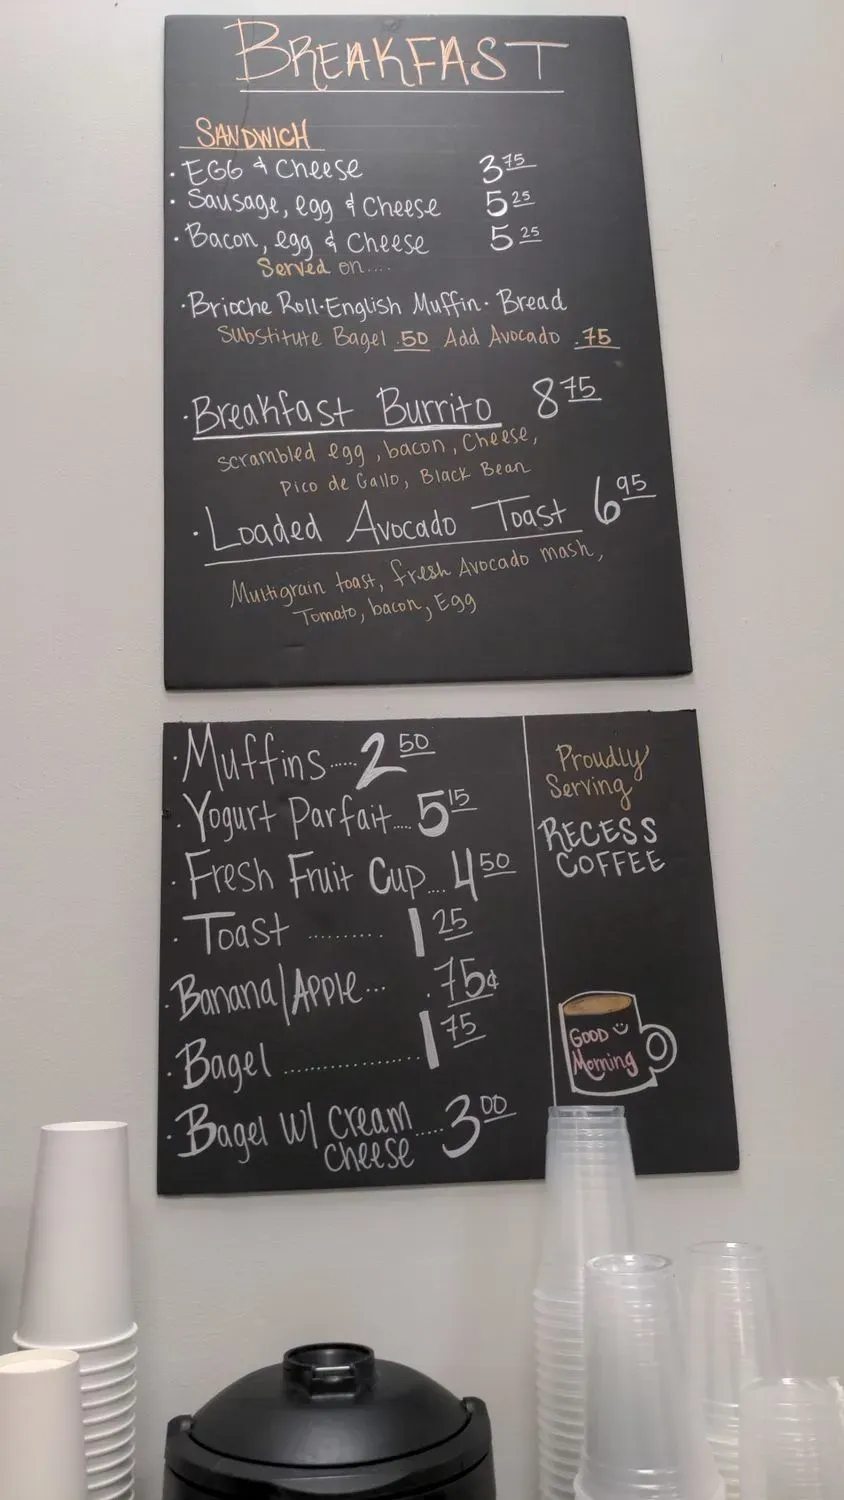 BREAKFAST
SANDWICH
· EGG & Cheese 3 75
· Sausage, egg & Cheese 5 25
· Bacon, egg & Cheese 5 25
Served on....
· Brioche Roll · English Muffin · Bread
Substitute Bagel .50 Add Avocado .75
· Breakfast Burrito 8 75
scrambled egg, bacon, Cheese,
Pico de Gallo, Black Bean
· Loaded Avocado Toast 6 95
Multigrain toast, fresh Avocado mash,
Tomato, bacon, Egg
· Muffins ..... 2 50
· Yogurt Parfait .... 5 15
· Fresh Fruit Cup .... 4 50
· Toast .......... 1 25
· Banana/Apple ... .75¢
· Bagel ................. 1 75
· Bagel w/ Cream ..... 3 00
Cheese
Proudly
Serving
RECESS
COFFEE
GOOD
Morning